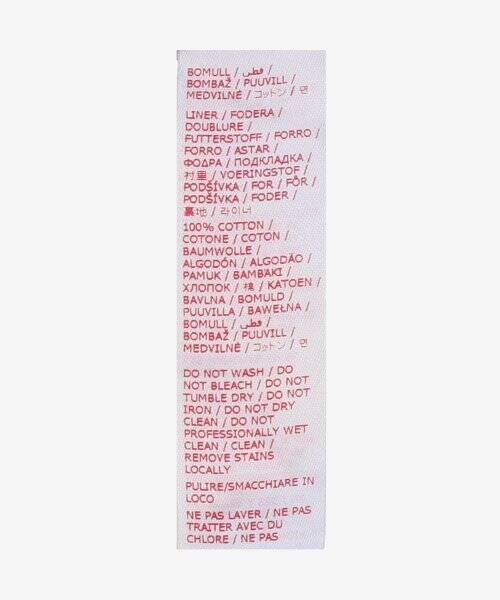 BOMULL / قطن /
BOMBAŽ / PUUVILL /
MEDVILNĖ / コットン / 면
LINER / FODERA /
DOUBLURE /
FUTTERSTOFF / FORRO /
FORRO / ASTAR /
ФОДРА / ПОДКЛАДКА /
衬里 / VOERINGSTOF /
PODŠÍVKA / FOR / FÔR /
PODŠÍVKA / FODER /
裏地 / 라이너
100% COTTON /
COTONE / COTON /
BAUMWOLLE /
ALGODÓN / ALGODÃO /
PAMUK / BAMBAKI /
ХЛОПОК / 棉 / KATOEN /
BAVLNA / BOMULD /
PUUVILLA / BAWEŁNA /
BOMULL / قطن /
BOMBAŽ / PUUVILL /
MEDVILNĖ / コットン / 면
DO NOT WASH / DO
NOT BLEACH / DO NOT
TUMBLE DRY / DO NOT
IRON / DO NOT DRY
CLEAN / DO NOT
PROFESSIONALLY WET
CLEAN / CLEAN /
REMOVE STAINS
LOCALLY
PULIRE/SMACCHIARE IN
LOCO
NE PAS LAVER / NE PAS
TRAITER AVEC DU
CHLORE / NE PAS